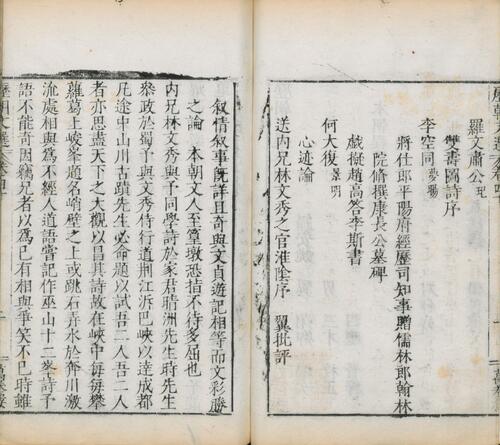 羅文肅公玘
雙壽圖詩序
李空同夢陽
將仕郎平陽府經歷司知事贈儒林郎翰林
院修撰康長公墓碑
戲擬趙高答李斯書
何大復景明
心迹論
送內兄林文秀之官淮陰序　翼批評
叙情叙事既詳且奇與文貞遊記相等而文彩勝
之論　本朝文人至皇墩恐指不待多屈也
内兄林文秀與予同學詩於家君晴洲先生時先生
叅政於蜀予與文秀侍行道荆江泝巴峽以達成都
凡途中山川古蹟先生必命題以試吾二人吾二人
者亦思盡天下之大觀以昌其詩故在峽中每每攀
蘿葛上峻峯題名峭壁之上或跳石弄水於奔川激
流處相與爲不經人道語嘗記作巫山十二峯詩予
語不能竒因竊兄者以爲已有相與一笑不已時雖